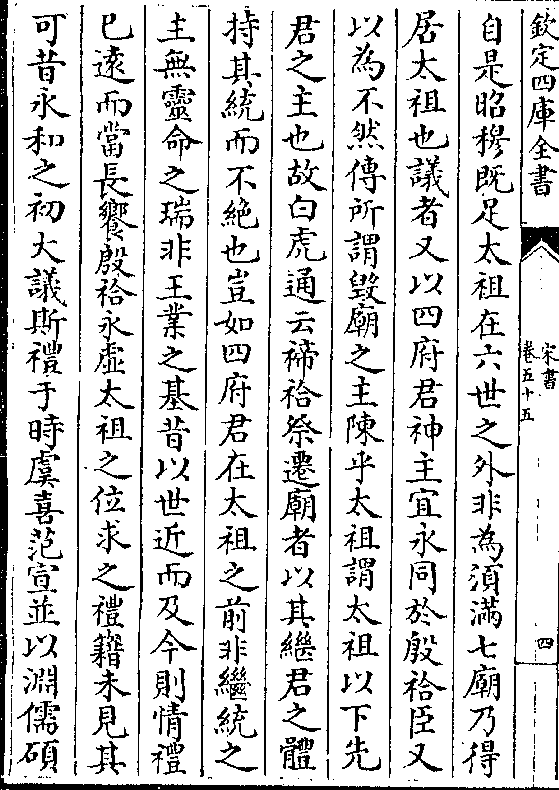 欽定四庫全書
宋書
卷五十五
四
自是昭穆既足太祖在六世之外非為須滿七廟乃得
居太祖也議者又以四府君神主宜永同於殷祫臣又
以為不然傳所謂毀廟之主陳乎太祖謂太祖以下先
君之主也故白虎通云禘祫祭遷廟者以其繼君之體
持其統而不絶也豈如四府君在太祖之前非繼統之
主無靈命之瑞非王業之基昔以世近而及今則情禮
已遠而當長饗殷祫永虛太祖之位求之禮籍未見其
可昔永和之初大議斯禮于時虞喜范宣並以淵儒碩